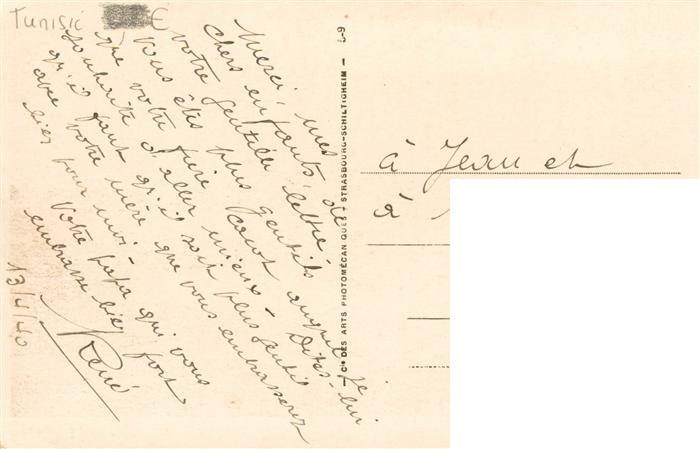 Tunisie €
Merci, mes
chers enfants, de
votre gentille lettre
vous êtes plus gentils
que votre frère auquel je
souhaite d'aller mieux - Dites-lui
qu'il faut qu'il soit plus gentil
avec votre mère que vous embrasserez
bien pour moi.
Votre papa qui vous
embrasse bien fort
René
13/4/40
— Cie DES ARTS PHOTOMÉCANIQUES - STRASBOURG-SCHILTIGHEIM —
à Jean et
à